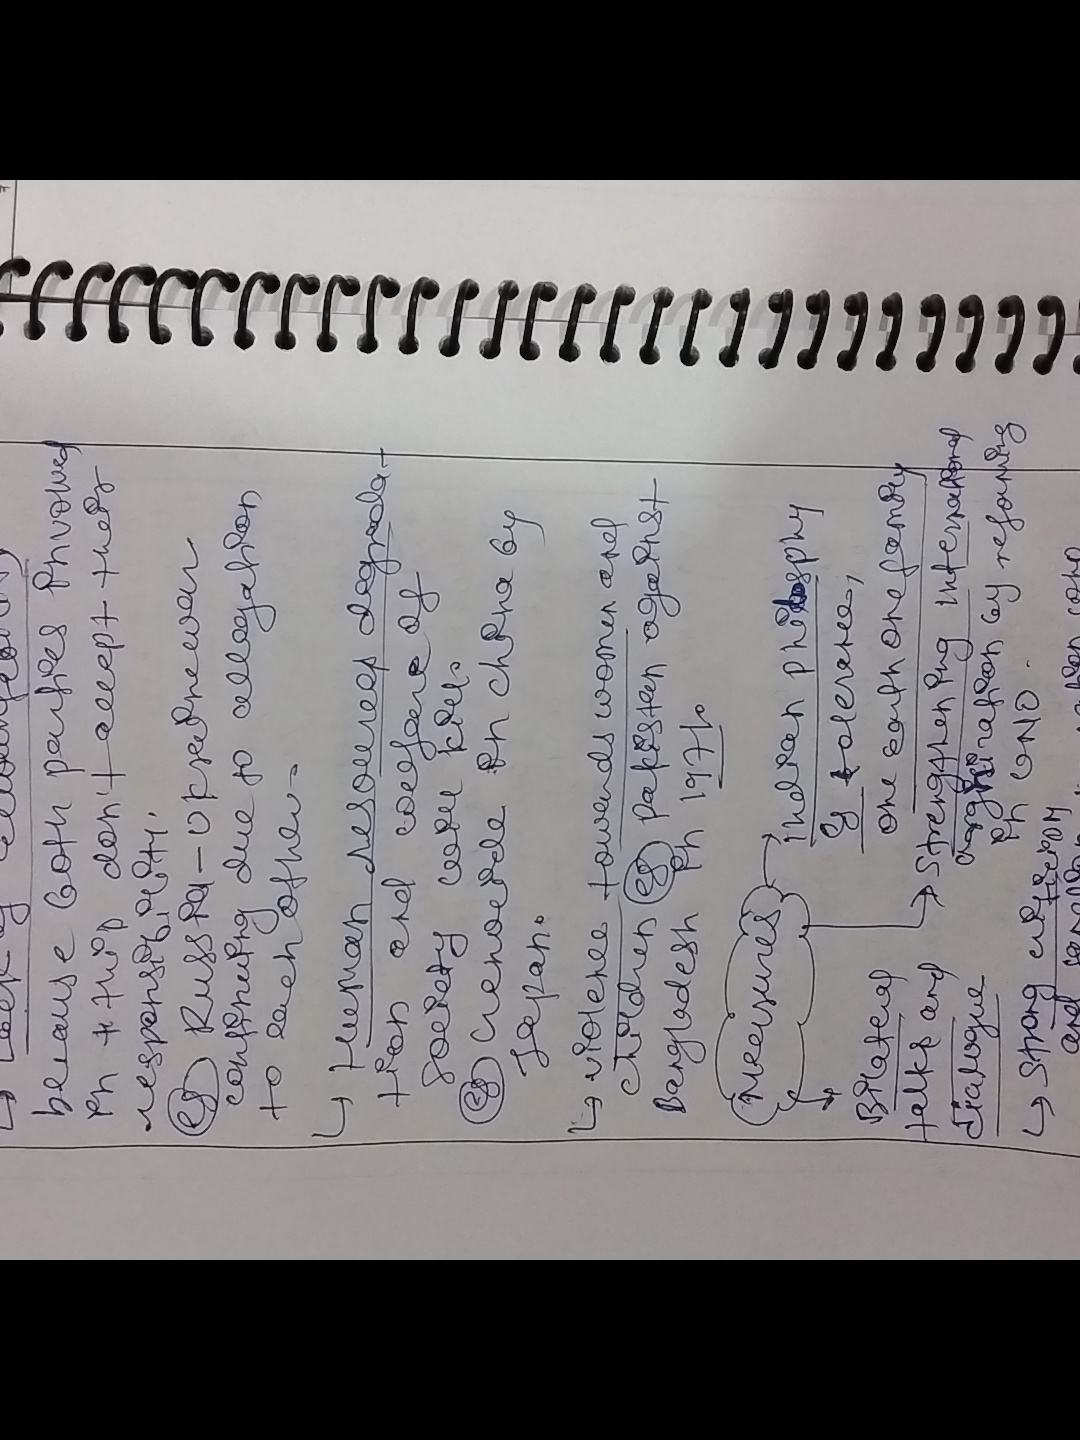 ↳ Lack of
because both parties involved
in this don't accept their
responsibility.
eg Russia-Ukraine war
continuing due to allegation
to each other.
↳ Human resources degrada-
tion and welfare of
society
eg Genocide in China by
Japan.
↳ violence towards women and
children eg Pakistan against
Bangladesh in 1971.
Measures
Indian philosphy
of tolerance,
one earth one family
Bilateral
talks and
dialogue
→ Strengthening international
by reforming
in UNO.
↳ Strong
and